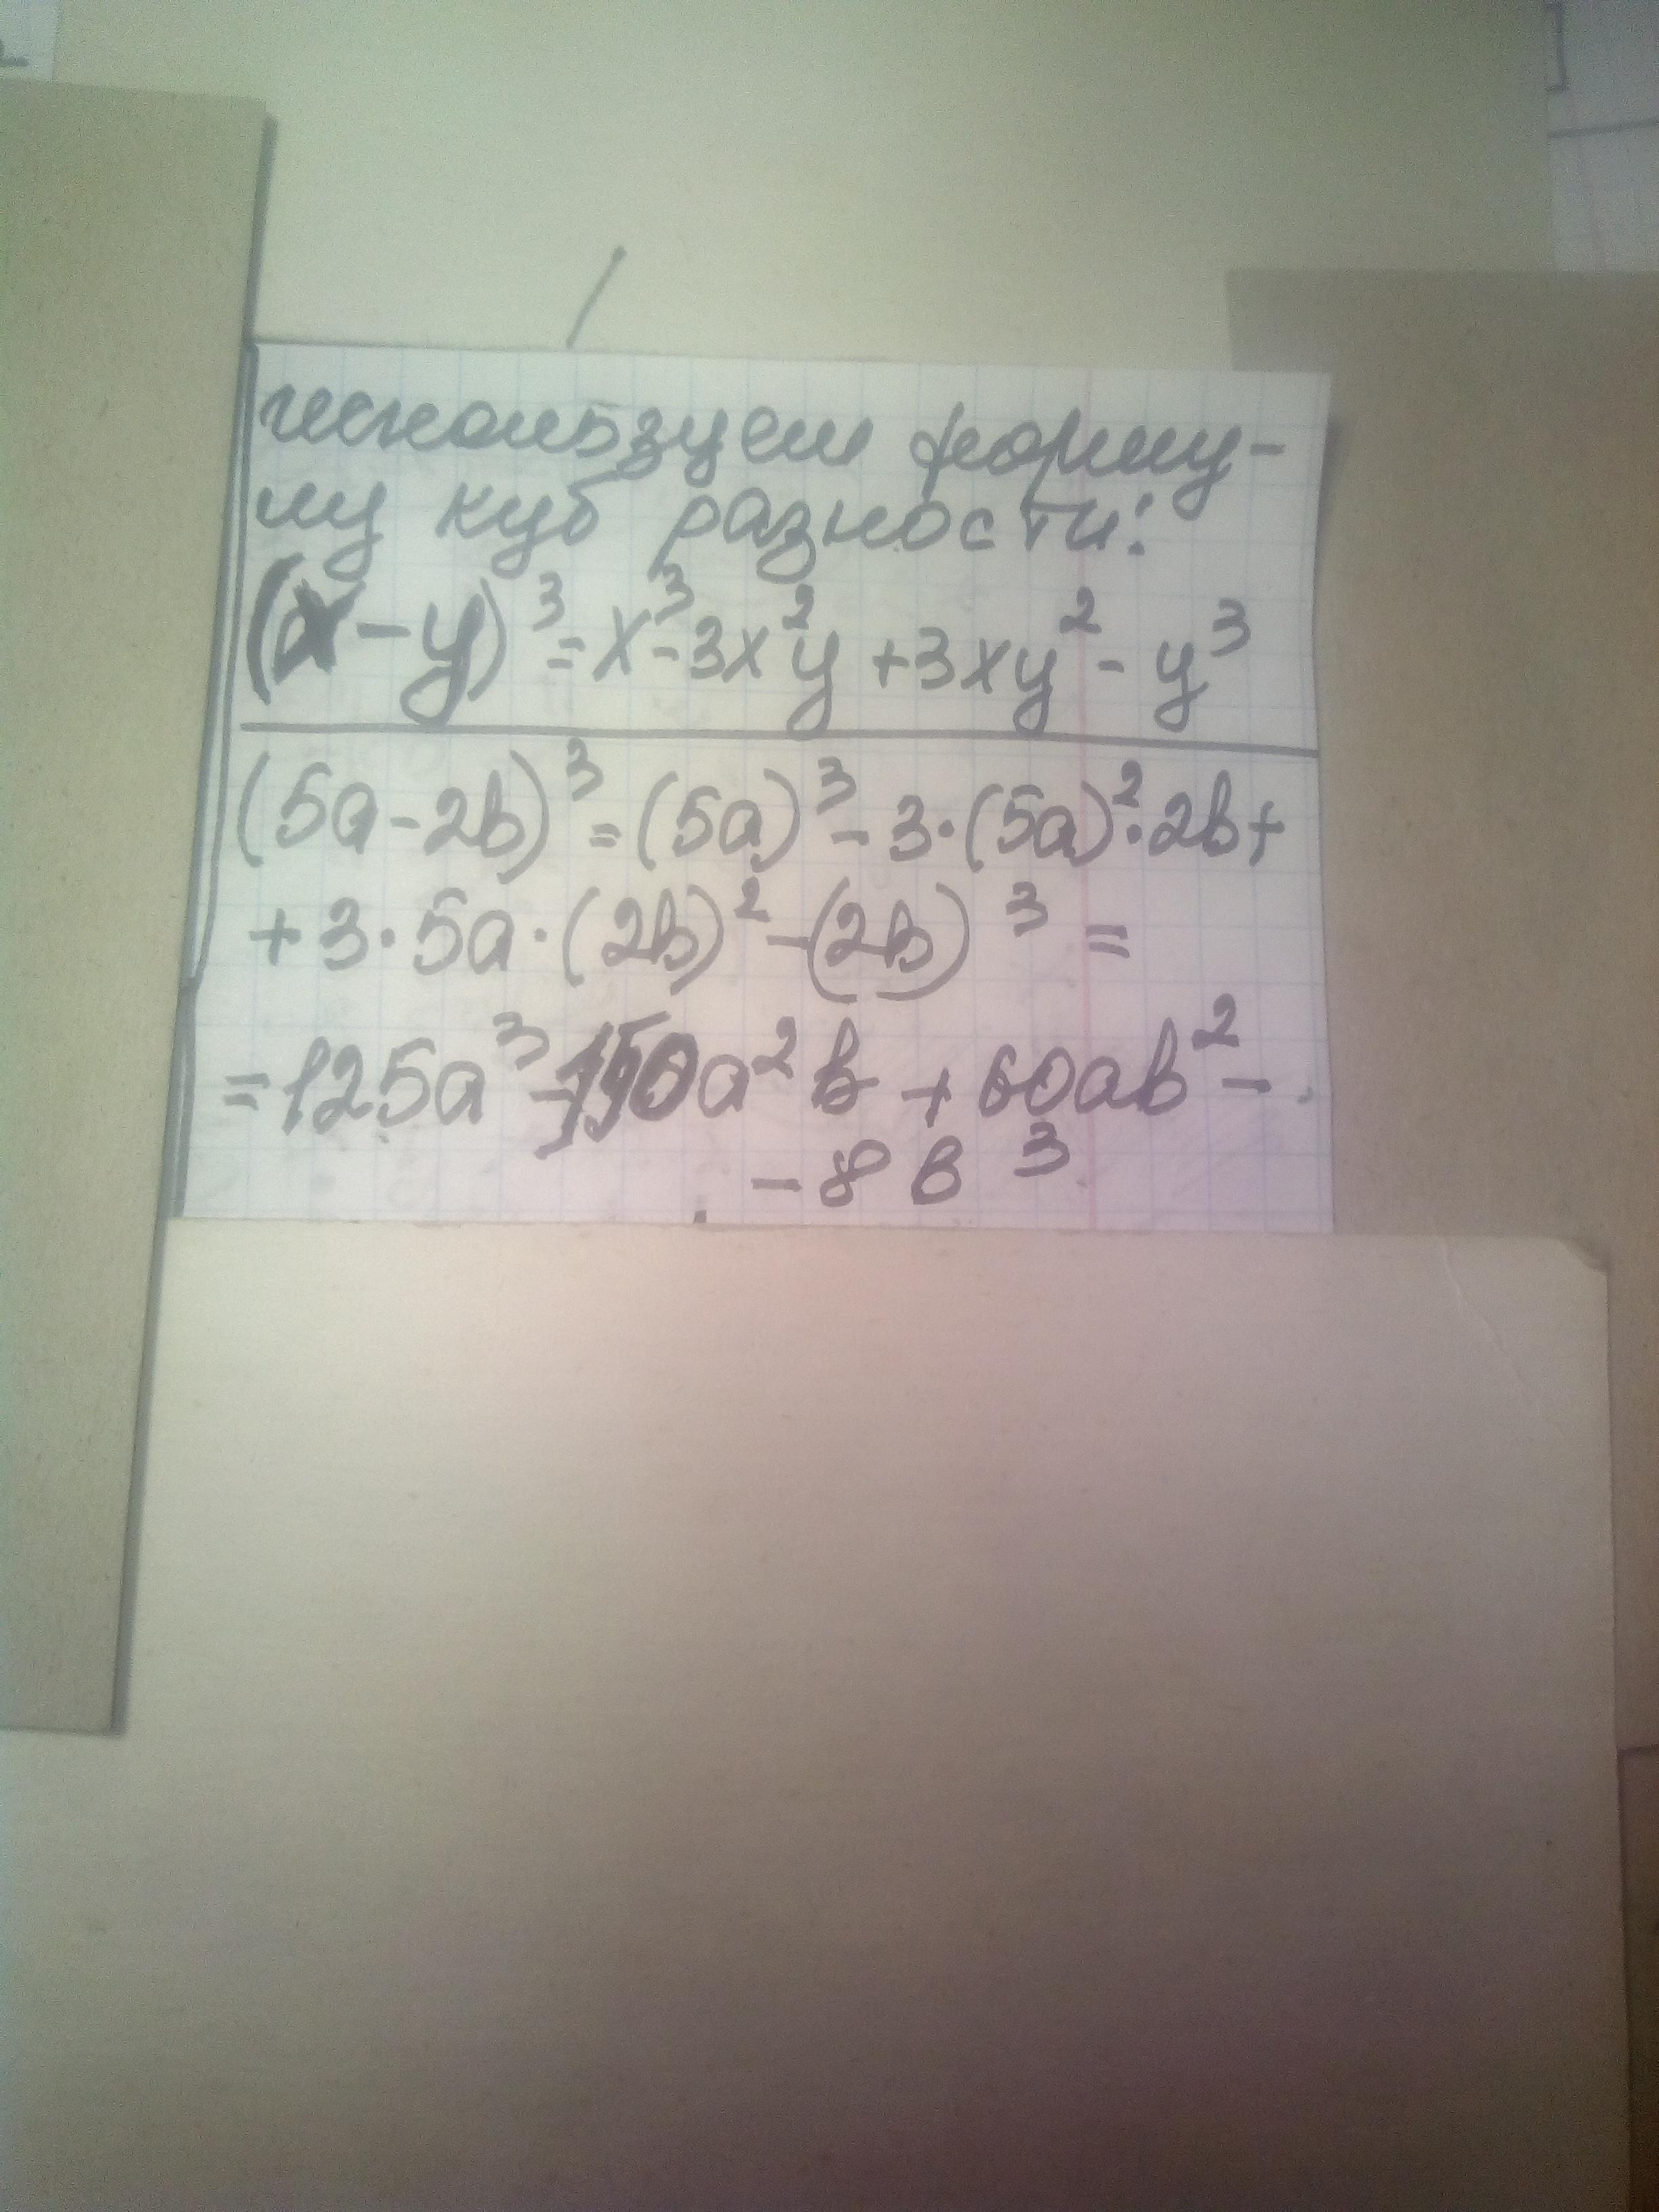 используем форму-
лу куб разности:
(x-y)³=x³-3x²y+3xy²-y³
(5a-2b)³=(5a)³-3·(5a)²·2b+
+3·5a·(2b)²-(2b)³=
=125a³-150a²b+60ab²-
-8в³